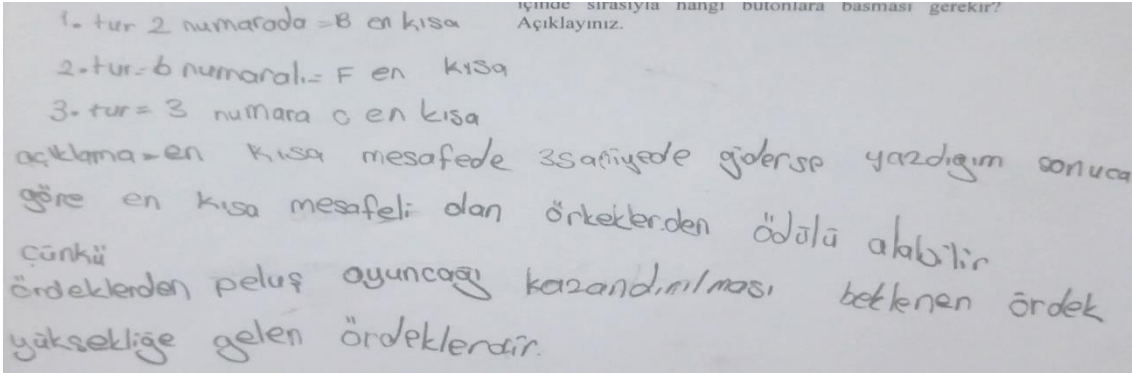 içinde sırasıyla hangi butonlara basması gerekir?
Açıklayınız.
1. tur 2 numarada = B en kısa
2. tur = 6 numaralı = F en kısa
3. tur = 3 numara c en kısa
açıklama = en kısa mesafede 3saniyede giderse yazdıgım sonuca
göre en kısa mesafeli olan örkeklerden ödülü alabilir
çünkü
ördeklerden peluş oyuncağı kazandırılması beklenen ördek
yüksekliğe gelen ördeklerdir.